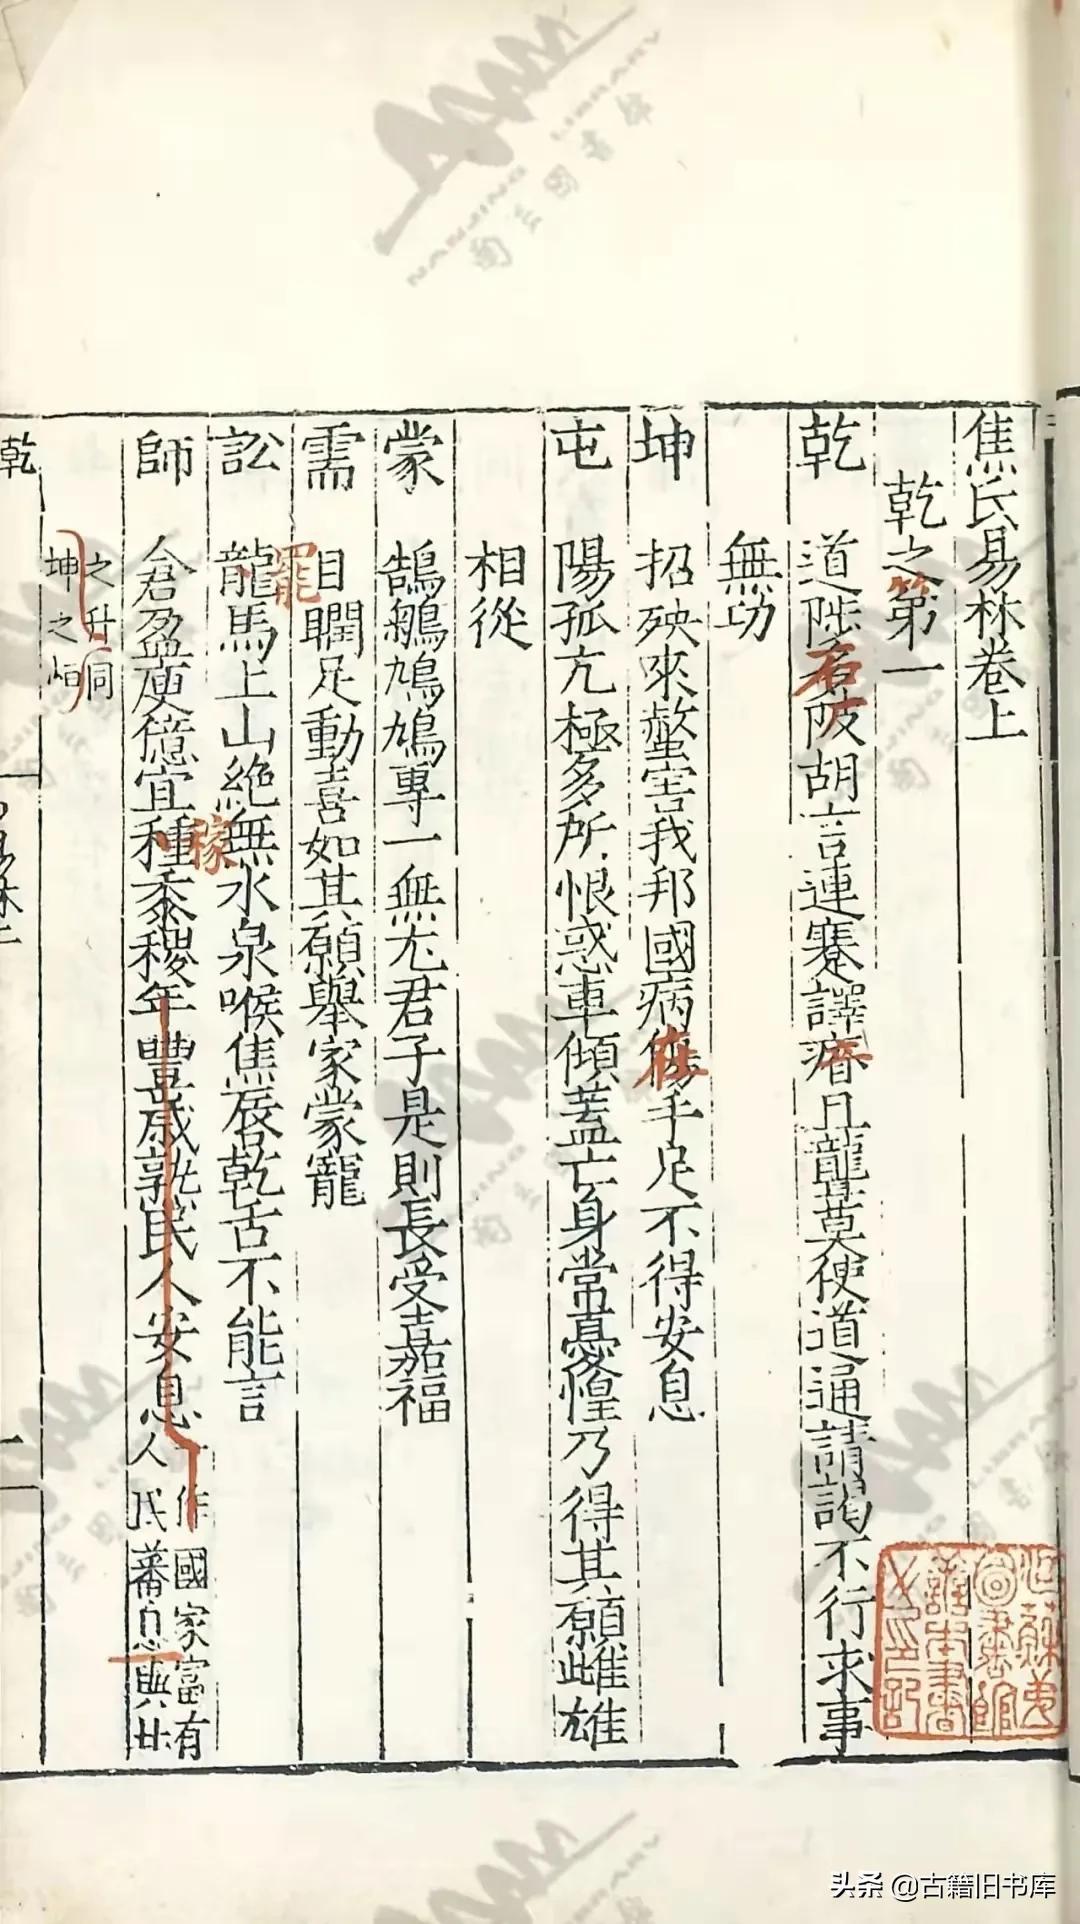 焦氏易林卷上
乾之第一
乾 道陟多阪胡言連蹇譯瘖且聾莫使道通請謁不行求事
無功
坤 招殃來螫害我邦國病傷手足不得安息
屯 陽孤亢極多所恨惑車傾蓋亡身常憂惶乃得其願雌雄
相從
蒙 鵠鵴鳲鳩專一無尤君子是則長受嘉福
需 目瞤足動喜如其願舉家蒙寵
訟 龍馬上山絶無水泉喉焦唇乾舌不能言
師 倉盈庾億宜種黍稷年豐歲熟民人安息
一作國家富有
人民蕃息與廿
之升同
坤之恒
乾
石
在
罷
稼
南京图书馆
头条 @古籍旧书库